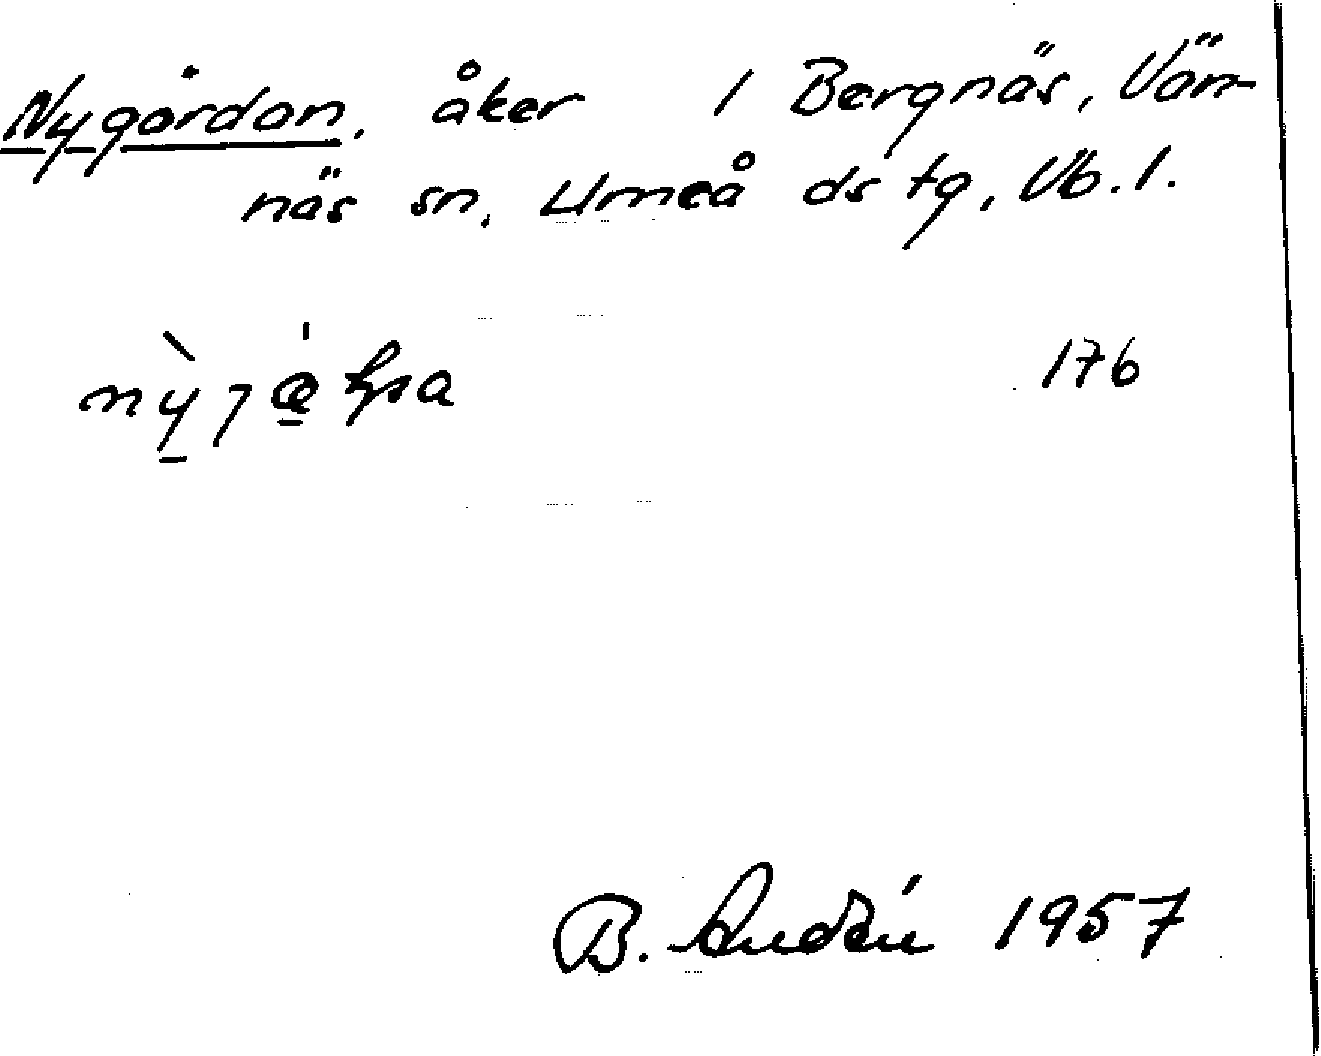 Nygårdan, åker i Bergnäs, Vän-
näs sn, Umeå dstg, Vb. l.
176
B. Audén 1957